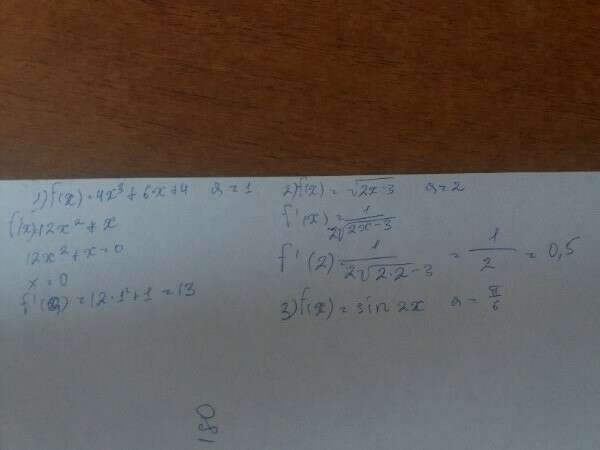 1) f(x)=4x³+6x+4 a=1
f'(x)=12x²+x
12x²+x=0
x=0
f'(a)=12·1²+1=13
2) f(x)=√2x-3 a=2
f'(x)=1/2√2x-3
f'(2) 1/2√2·2-3 = 1/2 = 0,5
3) f(x)=sin 2x a=π/6